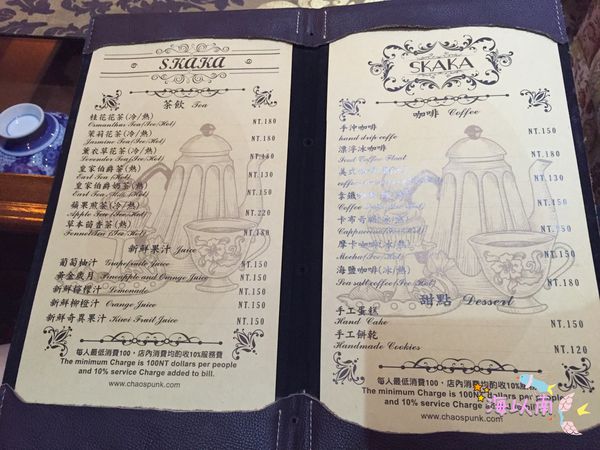 SKAKA
茶飲 Tea
桂花花茶(冷/熱)
Osmanthus Tea(Ice/Hot) NT.180
茉莉花茶(冷/熱)
Jasmine Tea(Ice/Hot) NT.180
薰衣草花茶(冷/熱)
Lavender Tea(Ice/Hot) NT.180
皇家伯爵茶(冷/熱)
Earl Tea (Ice/Hot) NT.130
皇家伯爵奶茶(冷/熱)
Earl Tea Milk(Ice/Hot) NT.150
蘋果煎茶(冷/熱)
Apple Tea(Ice/Hot) NT.220
草本茴香茶(熱)
NT.180
新鮮果汁 Juice
葡萄柚汁 Grapefruite Juice NT.150
黃金歲月 Pineapple and Orange Juice NT.150
新鮮檸檬汁 Lemonade NT.150
新鮮柳橙汁 Orange Juice NT.150
新鮮奇異果汁 Kiwi Fruit Juice NT.150
每人最低消費100,店內消費均酌收10%服務費
The minimum Charge is 100NT dollars per people
and 10% service Charge added to bill.
www.chaospunk.com
SKAKA
咖啡 Coffee
手沖咖啡
hand drip coffe NT.150
漂浮冰咖啡
Iced Coffee Float NT.180
美式
NT.130
拿鐵
NT.150
卡布奇
Cappuccino NT.150
摩卡咖啡(冰/熱)
Mocha(Ice/Hot) NT.150
海鹽咖啡(冰/熱)
Sea salt coffee(Ice/Hot) NT.180
甜點 Dessert
手工蛋糕
Hand Cake NT.150
手工餅乾
Handmade Cookies NT.120
每人最低消費100,店內消費均酌收10%服務費
The minimum Charge is 100NT dollars per people
and 10% service Charge added to bill.
www.chaospunk.com
海以南